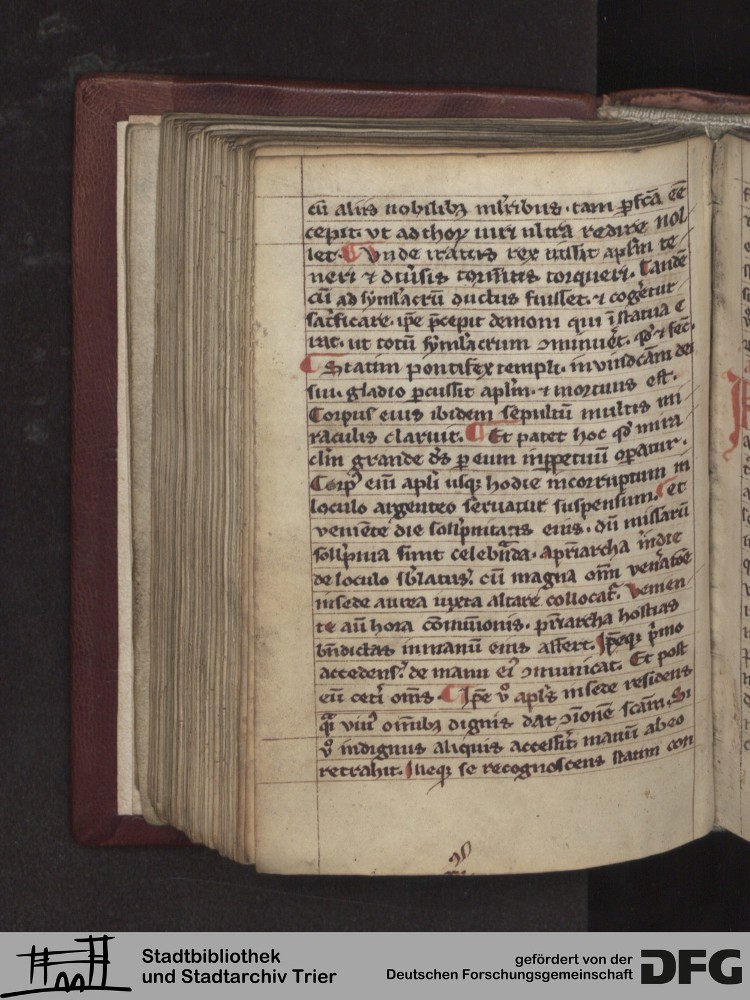 cū aliis nobilibꝫ mĺribus · tam ꝑfc̄a ēē
cepit · vt ad thoꝝ uiri ultra redire nol
let · Vnde iratus rex iussit aplm̄ te
neri ⁊ diu͛sis torm̄tis torqueri · Tandē
cū ad symĺacrū ductus fuisset · ⁊ cogēt͛ur
sac͛ficare · ip̄e p̄cepit demoni qui ī statua e
rat · ut totū symĺacrum ꝯminu͛et · Qd̓ ⁊ fec̄ ·
Statim pontifex templi · in uindc̄am dei
sui · gladio ꝑcussit aplm̄ · ⁊ mortuus est ·
Corpus eius ibidem sepultū multis mi
raculis claruit · Et patet hoc qd̓ mira
clm̄ grande ds̄ ꝑ eum inppetuū oꝑatur ·
Corpꝰ eiū apli usqꝫ hodie incorruptum in
loculo argenteo seruatur suspensum · et
veniēte die sollꝑnitatis eius · dū missarū
sollꝑnia sunt celebn̄da · apriarcha īndie
de loculo sb̓latus · cū magna om̄i ven͛atōe
in sede aurea iuxta altare collocat͛ · Venien
te aū hora cōmuūionis · pr̄iarcha hostias
bn̄dictas in manū eius affert · Ip̄eqꝫ p͛mo
accedens · de manu ei͛ ꝯmunicat · Et post
eū cet͛i om̄s · Ip̄e v͛o apl̄s in sede residens
q̄i viuꝰ om̄ibꝫ dignis dat ꝯ̄ionē scām · Si
v͛o indignus aliquis access͛it · manū ab eo
retrahit · Illeqꝫ se recognoscens statim con
Stadtbibliothek
und Stadtarchiv Trier
gefördert von der
Deutschen Forschungsgemeinschaft
DFG